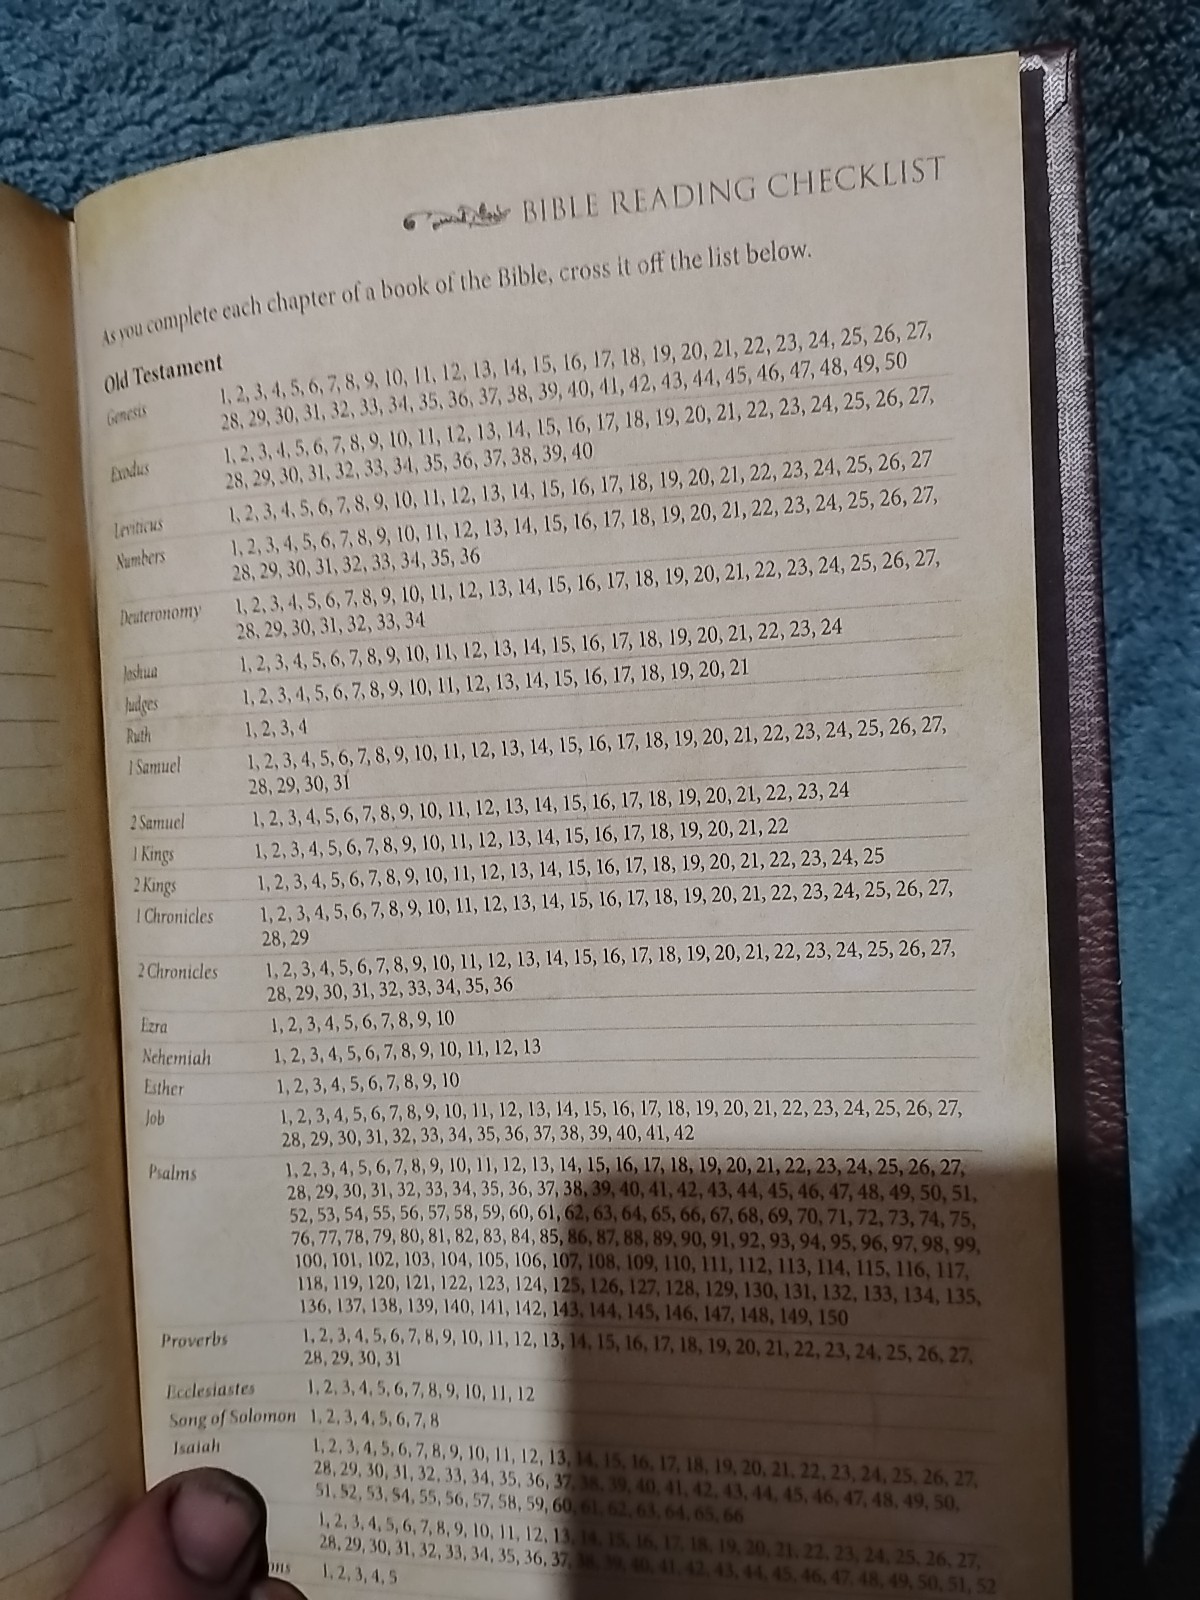 BIBLE READING CHECKLIST
As you complete each chapter of a book of the Bible, cross it off the list below.
Old Testament
Genesis 1, 2, 3, 4, 5, 6, 7, 8, 9, 10, 11, 12, 13, 14, 15, 16, 17, 18, 19, 20, 21, 22, 23, 24, 25, 26, 27,
28, 29, 30, 31, 32, 33, 34, 35, 36, 37, 38, 39, 40, 41, 42, 43, 44, 45, 46, 47, 48, 49, 50
Exodus 1, 2, 3, 4, 5, 6, 7, 8, 9, 10, 11, 12, 13, 14, 15, 16, 17, 18, 19, 20, 21, 22, 23, 24, 25, 26, 27,
28, 29, 30, 31, 32, 33, 34, 35, 36, 37, 38, 39, 40
Leviticus 1, 2, 3, 4, 5, 6, 7, 8, 9, 10, 11, 12, 13, 14, 15, 16, 17, 18, 19, 20, 21, 22, 23, 24, 25, 26, 27
Numbers 1, 2, 3, 4, 5, 6, 7, 8, 9, 10, 11, 12, 13, 14, 15, 16, 17, 18, 19, 20, 21, 22, 23, 24, 25, 26, 27,
28, 29, 30, 31, 32, 33, 34, 35, 36
Deuteronomy 1, 2, 3, 4, 5, 6, 7, 8, 9, 10, 11, 12, 13, 14, 15, 16, 17, 18, 19, 20, 21, 22, 23, 24, 25, 26, 27,
28, 29, 30, 31, 32, 33, 34
Joshua 1, 2, 3, 4, 5, 6, 7, 8, 9, 10, 11, 12, 13, 14, 15, 16, 17, 18, 19, 20, 21, 22, 23, 24
Judges 1, 2, 3, 4, 5, 6, 7, 8, 9, 10, 11, 12, 13, 14, 15, 16, 17, 18, 19, 20, 21
Ruth 1, 2, 3, 4
1 Samuel 1, 2, 3, 4, 5, 6, 7, 8, 9, 10, 11, 12, 13, 14, 15, 16, 17, 18, 19, 20, 21, 22, 23, 24, 25, 26, 27,
28, 29, 30, 31
2 Samuel 1, 2, 3, 4, 5, 6, 7, 8, 9, 10, 11, 12, 13, 14, 15, 16, 17, 18, 19, 20, 21, 22, 23, 24
1 Kings 1, 2, 3, 4, 5, 6, 7, 8, 9, 10, 11, 12, 13, 14, 15, 16, 17, 18, 19, 20, 21, 22
2 Kings 1, 2, 3, 4, 5, 6, 7, 8, 9, 10, 11, 12, 13, 14, 15, 16, 17, 18, 19, 20, 21, 22, 23, 24, 25
1 Chronicles 1, 2, 3, 4, 5, 6, 7, 8, 9, 10, 11, 12, 13, 14, 15, 16, 17, 18, 19, 20, 21, 22, 23, 24, 25, 26, 27,
28, 29
2 Chronicles 1, 2, 3, 4, 5, 6, 7, 8, 9, 10, 11, 12, 13, 14, 15, 16, 17, 18, 19, 20, 21, 22, 23, 24, 25, 26, 27,
28, 29, 30, 31, 32, 33, 34, 35, 36
Ezra 1, 2, 3, 4, 5, 6, 7, 8, 9, 10
Nehemiah 1, 2, 3, 4, 5, 6, 7, 8, 9, 10, 11, 12, 13
Esther 1, 2, 3, 4, 5, 6, 7, 8, 9, 10
Job 1, 2, 3, 4, 5, 6, 7, 8, 9, 10, 11, 12, 13, 14, 15, 16, 17, 18, 19, 20, 21, 22, 23, 24, 25, 26, 27,
28, 29, 30, 31, 32, 33, 34, 35, 36, 37, 38, 39, 40, 41, 42
Psalms 1, 2, 3, 4, 5, 6, 7, 8, 9, 10, 11, 12, 13, 14, 15, 16, 17, 18, 19, 20, 21, 22, 23, 24, 25, 26, 27,
28, 29, 30, 31, 32, 33, 34, 35, 36, 37, 38, 39, 40, 41, 42, 43, 44, 45, 46, 47, 48, 49, 50, 51,
52, 53, 54, 55, 56, 57, 58, 59, 60, 61, 62, 63, 64, 65, 66, 67, 68, 69, 70, 71, 72, 73, 74, 75,
76, 77, 78, 79, 80, 81, 82, 83, 84, 85, 86, 87, 88, 89, 90, 91, 92, 93, 94, 95, 96, 97, 98, 99,
100, 101, 102, 103, 104, 105, 106, 107, 108, 109, 110, 111, 112, 113, 114, 115, 116, 117,
118, 119, 120, 121, 122, 123, 124, 125, 126, 127, 128, 129, 130, 131, 132, 133, 134, 135,
136, 137, 138, 139, 140, 141, 142, 143, 144, 145, 146, 147, 148, 149, 150
Proverbs 1, 2, 3, 4, 5, 6, 7, 8, 9, 10, 11, 12, 13, 14, 15, 16, 17, 18, 19, 20, 21, 22, 23, 24, 25, 26, 27,
28, 29, 30, 31
Ecclesiastes 1, 2, 3, 4, 5, 6, 7, 8, 9, 10, 11, 12
Song of Solomon 1, 2, 3, 4, 5, 6, 7, 8
Isaiah 1, 2, 3, 4, 5, 6, 7, 8, 9, 10, 11, 12, 13, 14, 15, 16, 17, 18, 19, 20, 21, 22, 23, 24, 25, 26, 27,
28, 29, 30, 31, 32, 33, 34, 35, 36, 37, 38, 39, 40, 41, 42, 43, 44, 45, 46, 47, 48, 49, 50,
51, 52, 53, 54, 55, 56, 57, 58, 59, 60, 61, 62, 63, 64, 65, 66
1, 2, 3, 4, 5, 6, 7, 8, 9, 10, 11, 12, 13, 14, 15, 16, 17, 18, 19, 20, 21, 22, 23, 24, 25, 26, 27,
28, 29, 30, 31, 32, 33, 34, 35, 36, 37, 38, 39, 40, 41, 42, 43, 44, 45, 46, 47, 48, 49, 50, 51, 52
1, 2, 3, 4, 5